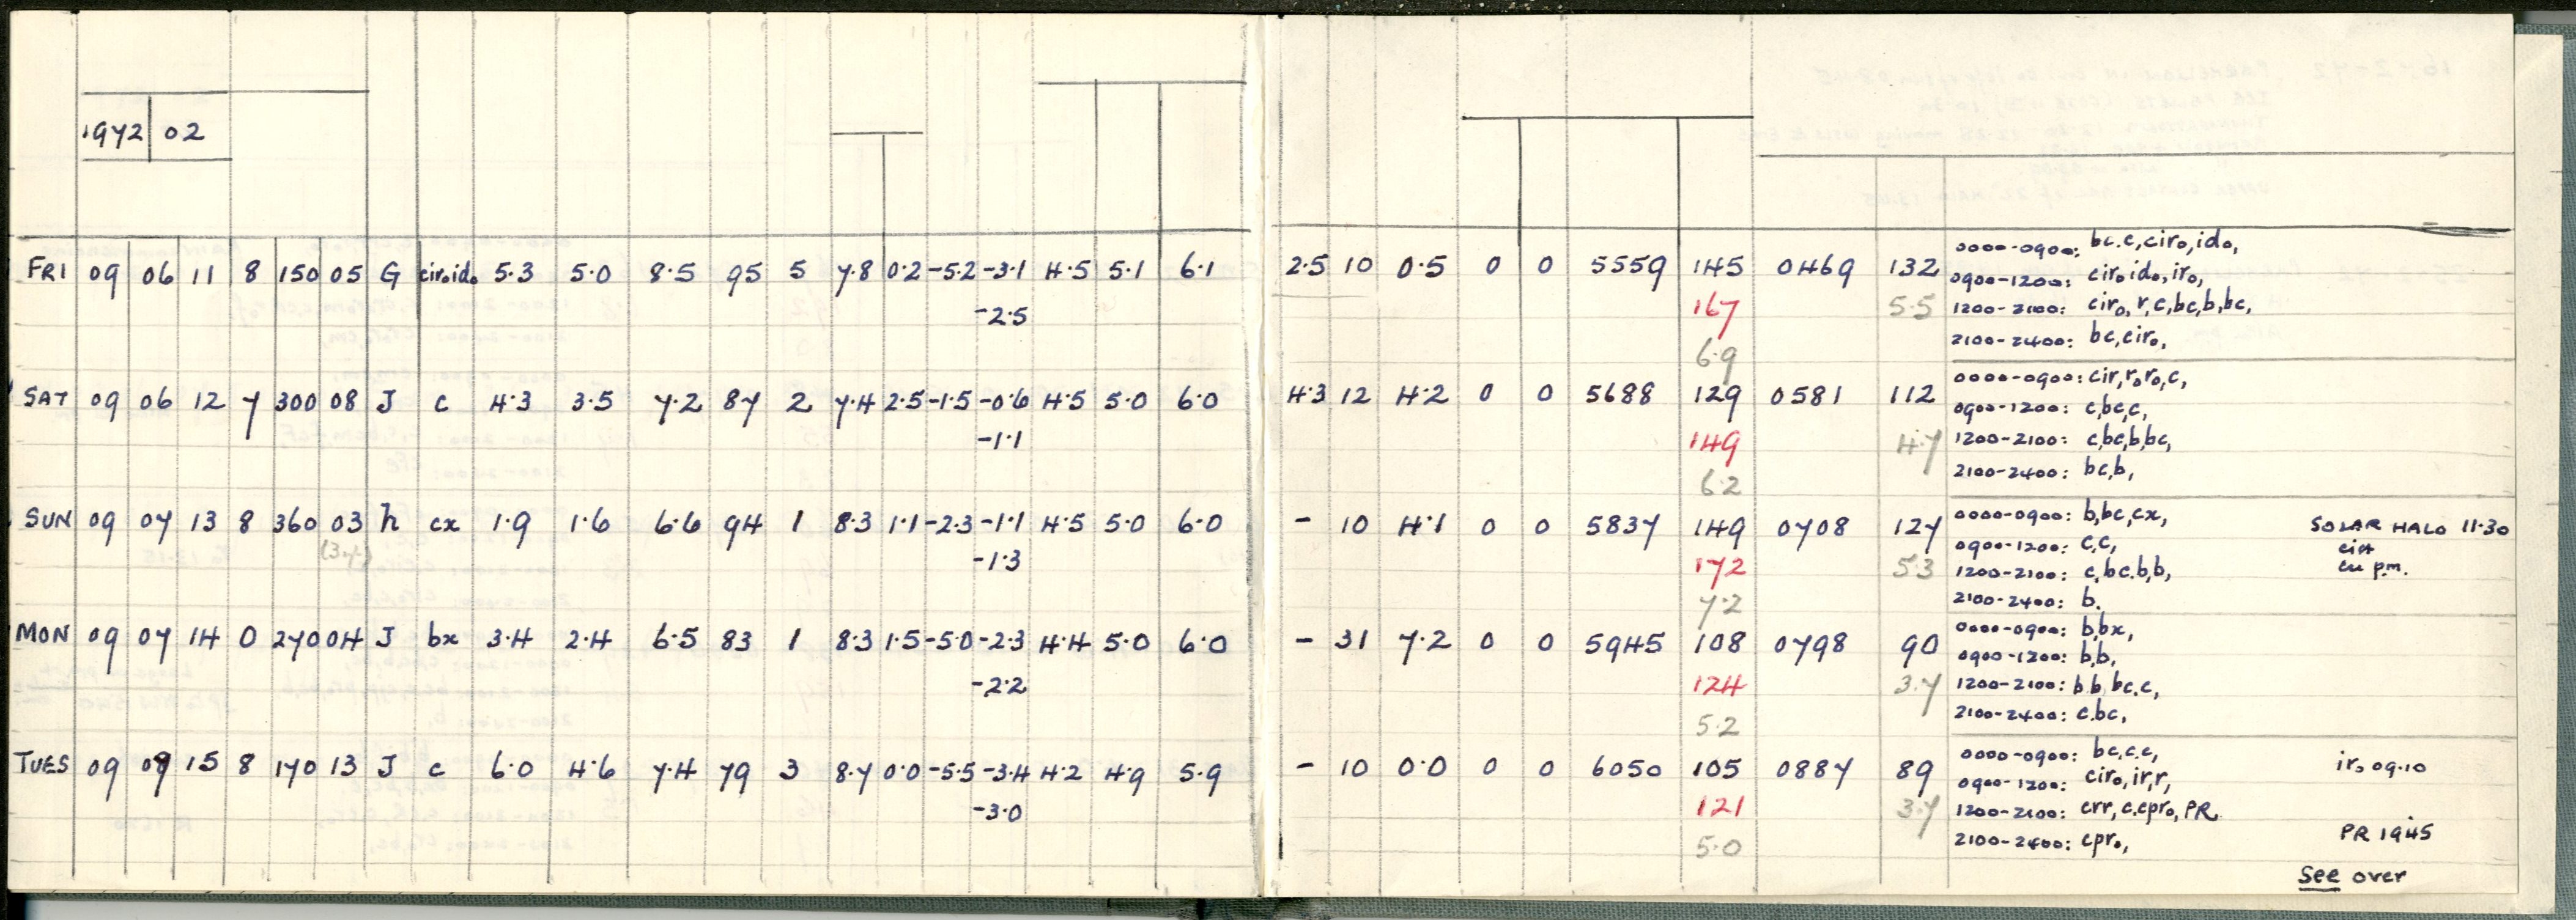 1972 02
FRI 09 06 11 8 150 05 G ciroido 5.3 5.0 8.5 95 5 7.8 0.2 -5.2 -3.1 4.5 5.1 6.1 2.5 10 0.5 0 0 5559 145 0469 132 0000-0900: bc.c,ciro,ido,
0900-1200: ciroido,iro,
-2.5 167 5.5 1200-2100: ciro,r,c,bc,b,bc,
6.9 2100-2400: bc,ciro,
SAT 09 06 12 7 300 08 J c 4.3 3.5 7.2 87 2 7.4 2.5 -1.5 -0.6 4.5 5.0 6.0 4.3 12 4.2 0 0 5688 129 0581 112 0000-0900: cir,roro,c,
0900-1200: c,bc,c,
-1.1 149 4.7 1200-2100: c,bc,b,bc,
6.2 2100-2400: bc,b,
SUN 09 07 13 8 360 03 h cx 1.9 1.6 6.6 94 1 8.3 1.1 -2.3 -1.1 4.5 5.0 6.0 - 10 4.1 0 0 5837 149 0708 127 0000-0900: b,bc,cx, SOLAR HALO 11.30
0900-1200: c,c,
-1.3 172 5.3 1200-2100: c,bc.b,b, cu p.m.
7.2 2100-2400: b.
MON 09 07 14 0 270 04 J bx 3.4 2.4 6.5 83 1 8.3 1.5 -5.0 -2.3 4.4 5.0 6.0 - 31 7.2 0 0 5945 108 0798 90 0000-0900: b,bx,
0900-1200: b,b,
-2.2 124 3.7 1200-2100: b.b,bc.c,
5.2 2100-2400: c.bc,
TUES 09 09 15 8 170 13 J c 6.0 4.6 7.4 79 3 8.7 0.0 -5.5 -3.4 4.2 4.9 5.9 - 10 0.0 0 0 6050 105 0887 89 0000-0900: bc,c.c, iro 09.10
0900-1200: ciro,ir,r,
-3.0 121 3.7 1200-2100: crr,c.cpro,PR
5.0 2100-2400: cpro, PR 1945
See over